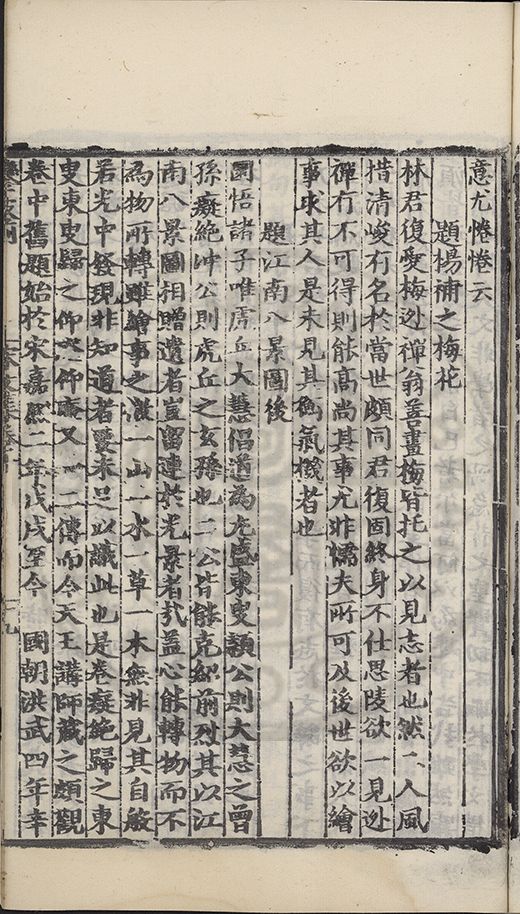 意尤惓惓云
題楊補之梅花
林君復愛梅逃禪翁善畫梅皆托之以見志者也然二人風
措清峻有名於當世頗同君復固終身不仕思陵欲一見逃
禪有不可得則能高尚其事尤非懦夫所可及後世欲以繪
事求其人是未見其衡氣機者也
題江南八景圖後
圜悟諸子唯虎丘大慧倡道為尤盛東叟頴公則大慧之曾
孫癡絶冲公則虎丘之玄孫也二公皆能克紹前烈其以江
南八景圖相贈遺者豈留連於光景者㢤益心能轉物而不
為物所轉雖繪事之㣲一山一水一草一木無非見其自
若光中發現非知道者要未足以議此也是卷癡絶歸之東
叟東叟歸之仰仰菴又一二傳而今天王講師蔵之頗觀
卷中舊題始於宋嘉熈二年戊戌至今 國朝洪武四年辛